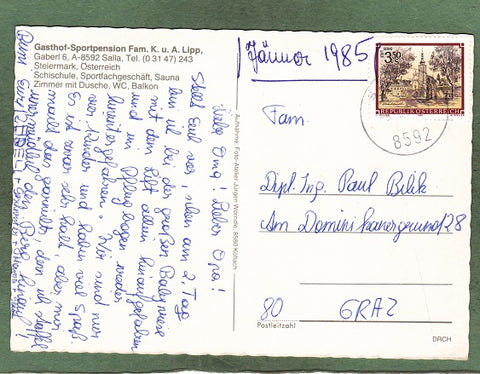 Gasthof-Sportpension Fam. K. u. A. Lipp,
Gaberl 6, A-8592 Salla, Tel. (0 31 47) 243
Steiermark, Österreich
Schischule, Sportfachgeschäft, Sauna
Zimmer mit Dusche, WC, Balkon
Liebe Omi! Lieber Opa!
Stellt Euch vor, schon am 2. Tag
bin ich bei der großen Babywiese
mit dem Lift allein hinaufgefahren
und im Pflugbogen wieder
heruntergefahren. Wir sind nur
vier Kinder und haben viel Spaß
Es ist zwar sehr kalt, aber mir
macht das garnichts, denn ich
unermüdlich den Berg hinauf!
Aufnahme: Foto-Atelier Jürgen Wörndle, 8580 Köflach
Jänner 1985
3.50
REPUBLIK ÖSTERREICH
8592
Fam.
Dipl. Ing. Paul Bilik
Am Dominikanergrund 28
80 GRAZ
Postleitzahl
DRCH